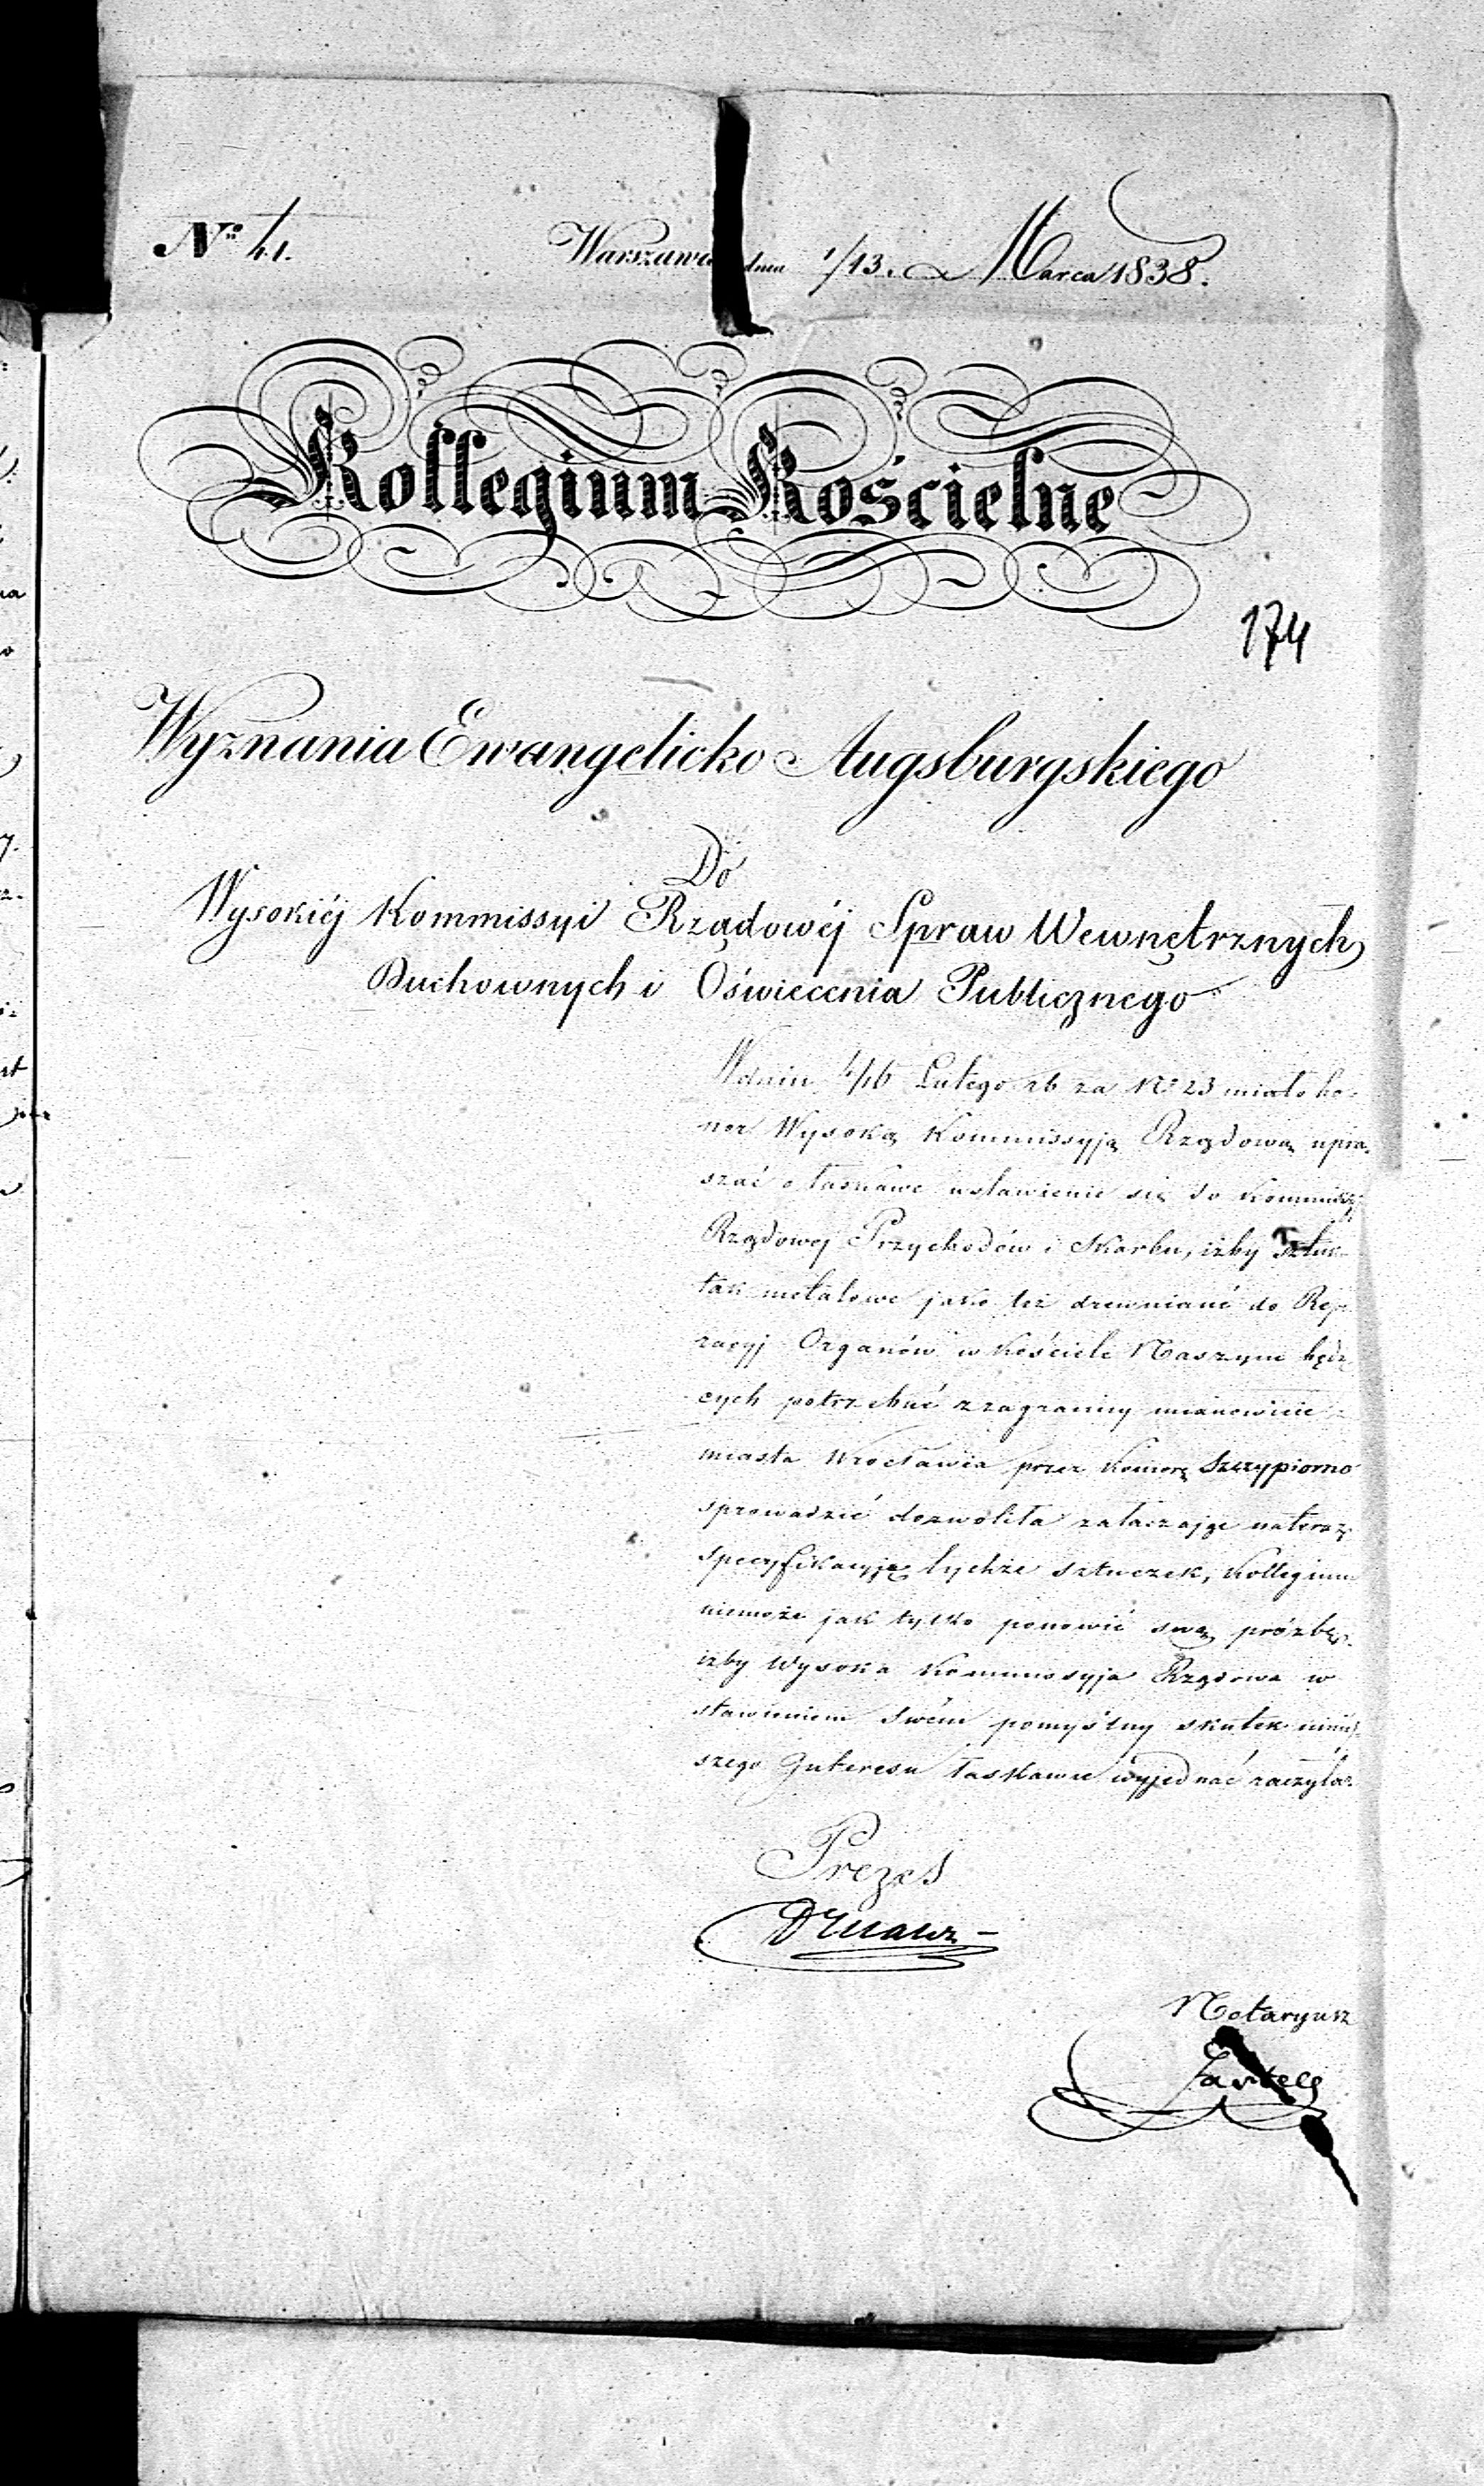 Nº 41. Warszawa dnia 1/13. Marca 1838.
Kollegium Kościelne
174
Wyznania Ewangelicko Augsburgskiego
Do
Wysokiéj Kommissyi Rządowéj Spraw Wewnętrznych
Duchownych i Oświecenia Publicznego
W dniu 4/16 Lutego rb za Nº 23 miało ho-
nor Wysoką Kommissyją Rządową upra-
szać o łaskawe wstawienie się do Kommissyi
Rządowej Przychodów i Skarbu, iżby
tak metalowe jako też drewniané do Rep
racyj Organów w Kościele Naszym będą
cych potrzebné z zagranicy mianowicie
miasta Wrocławia przez Komorę Szczypiorno
sprowadzić dozwoliła załączając na teraz
specyfikacyję tychże sztuczek, Kollegium
niemoże jak tylko ponowić swą próżbę
iżby Wysoka Kommissyja Rządowa w
stawieniem swém pomyślny skutek niniej
szego Interesu łaskawie wyjednać raczyła
Prezes
Notaryusz